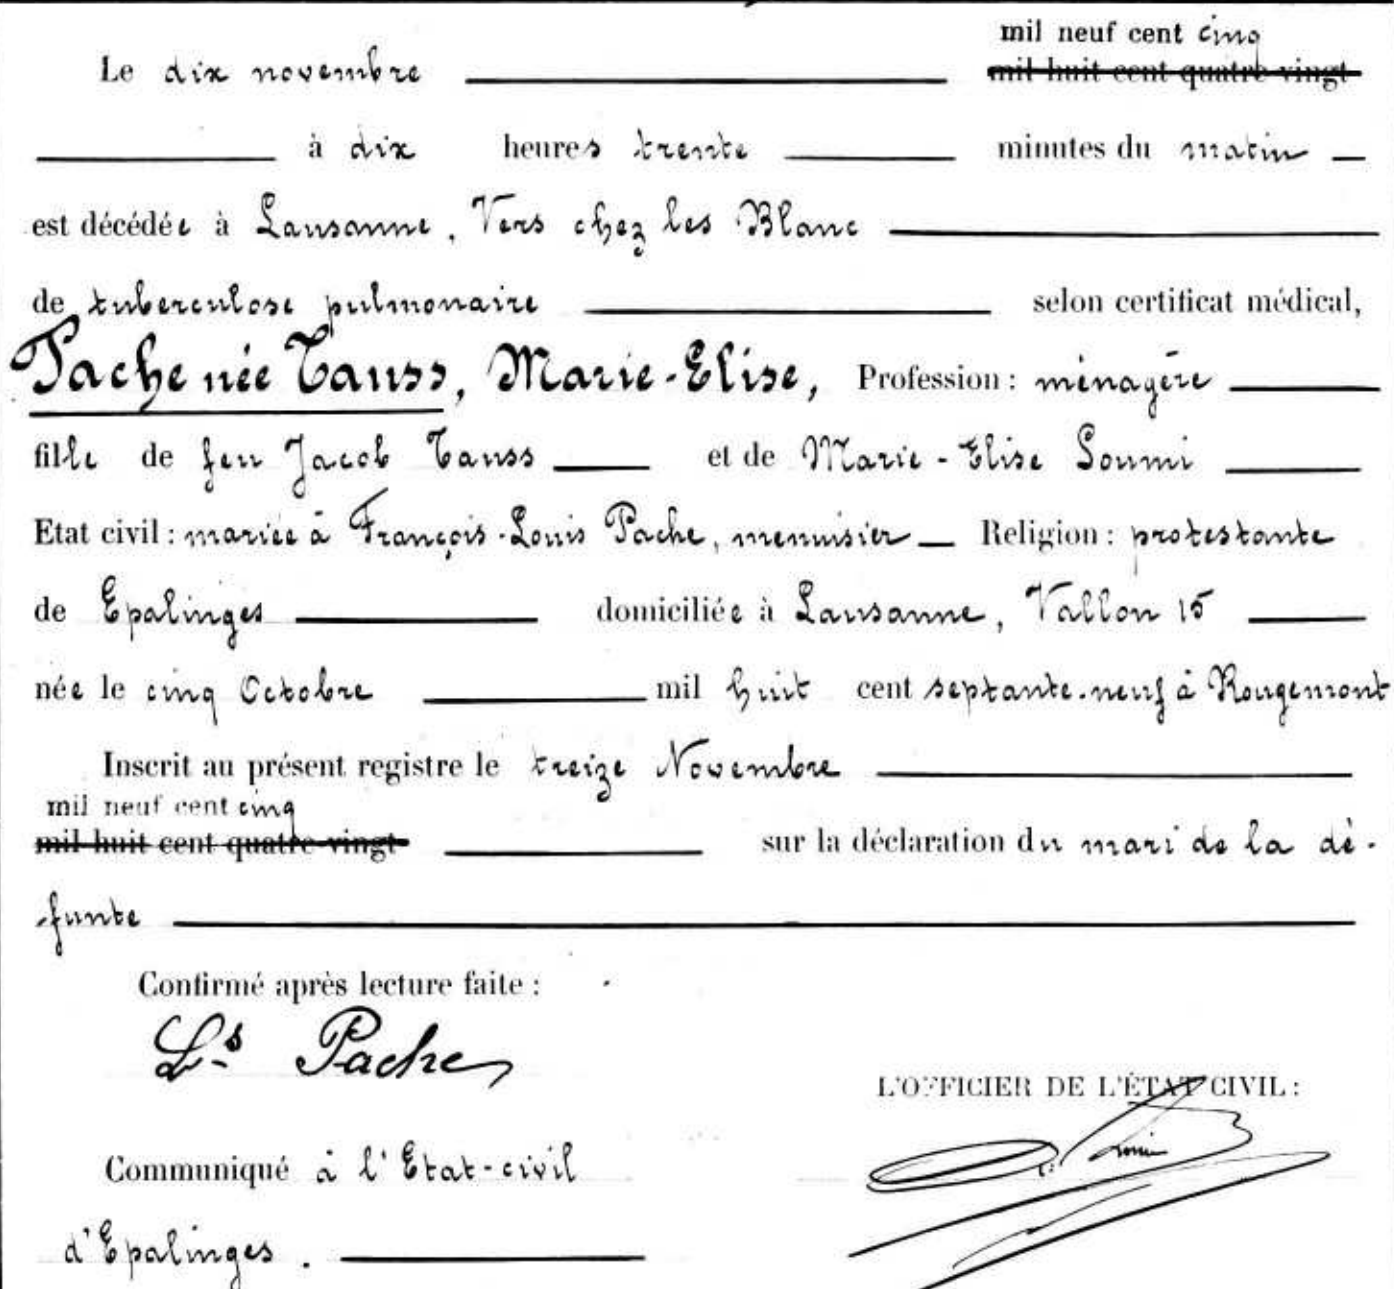 mil neuf cent cinq
Le dix novembre mil huit cent quatre-vingt
à dix heures trente minutes du matin
est décédée à Lausanne, Vers chez les Blanc
de tuberculose pulmonaire selon certificat médical,
Pache née Tauss, Marie-Elise, Profession : ménagère
fille de feu Jacob Tauss et de Marie-Elise Loumi
Etat civil : mariée à François-Louis Pache, menuisier Religion : protestante
de Epalinges domiciliée à Lausanne, Vallon 15
née le cinq Octobre mil huit cent septante-neuf à Rougemont
Inscrit au présent registre le treize Novembre
mil neuf cent cinq
mil huit cent quatre-vingt sur la déclaration du mari de la dé-
-funte
Confirmé après lecture faite :
Ls Pache
L'OFFICIER DE L'ÉTAT CIVIL :
Communiqué à l'Etat-civil
d'Epalinges.